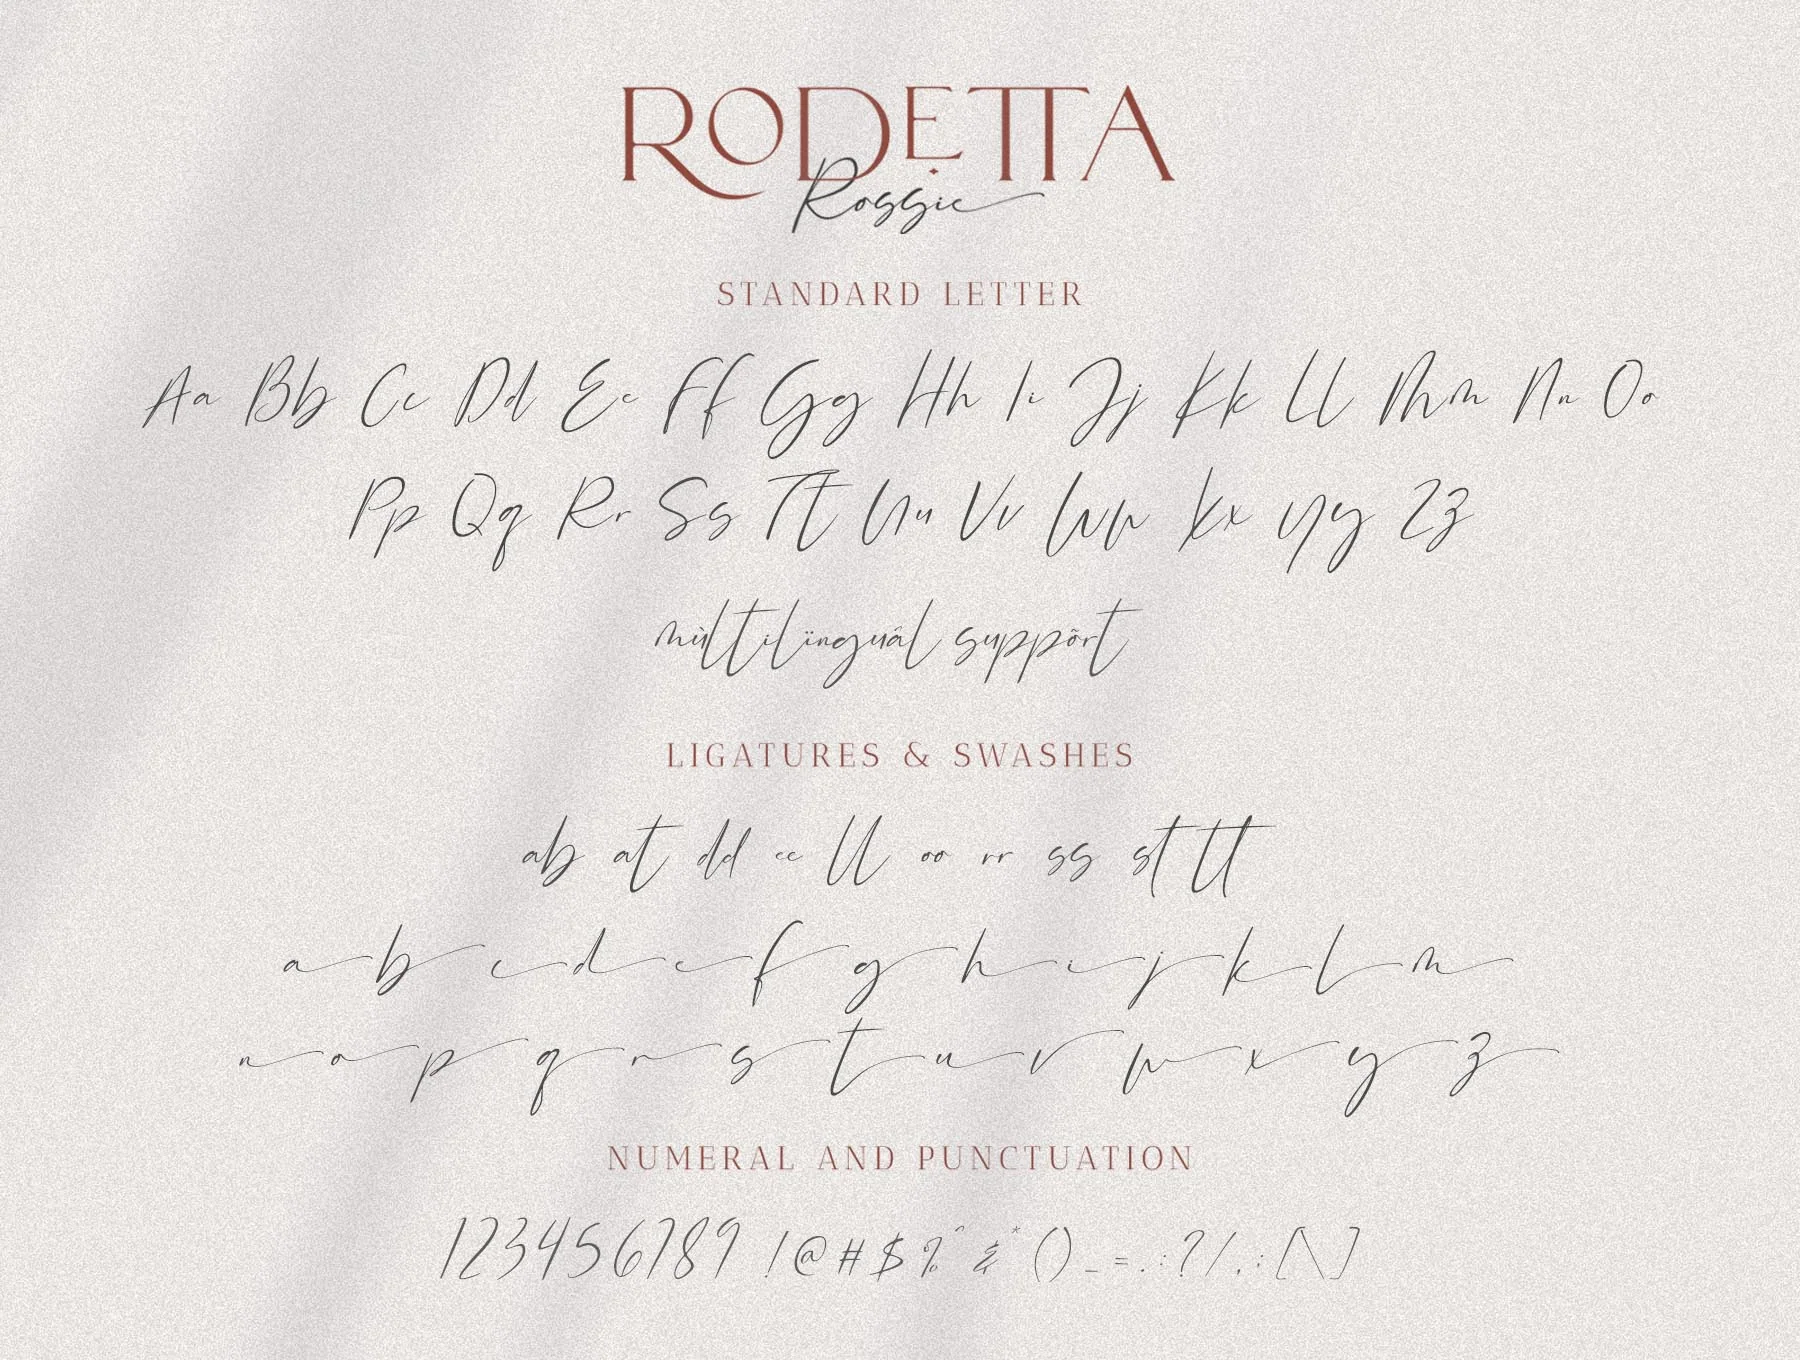 RODETTA
Rossie
STANDARD LETTER
Aa Bb Cc Dd Ee Ff Gg Hh Ii Jj Kk Ll Mm Nn Oo
Pp Qq Rr Ss Tt Uu Vv Ww Xx Yy Zz
mùltilïnguál suppõrt
LIGATURES & SWASHES
ab at dd ee ll oo rr ss st tt
a b c d e f g h i j k l m
n o p q r s t u v w x y z
NUMERAL AND PUNCTUATION
123456789 !@#$%^&*()_=.:?/,;[\]